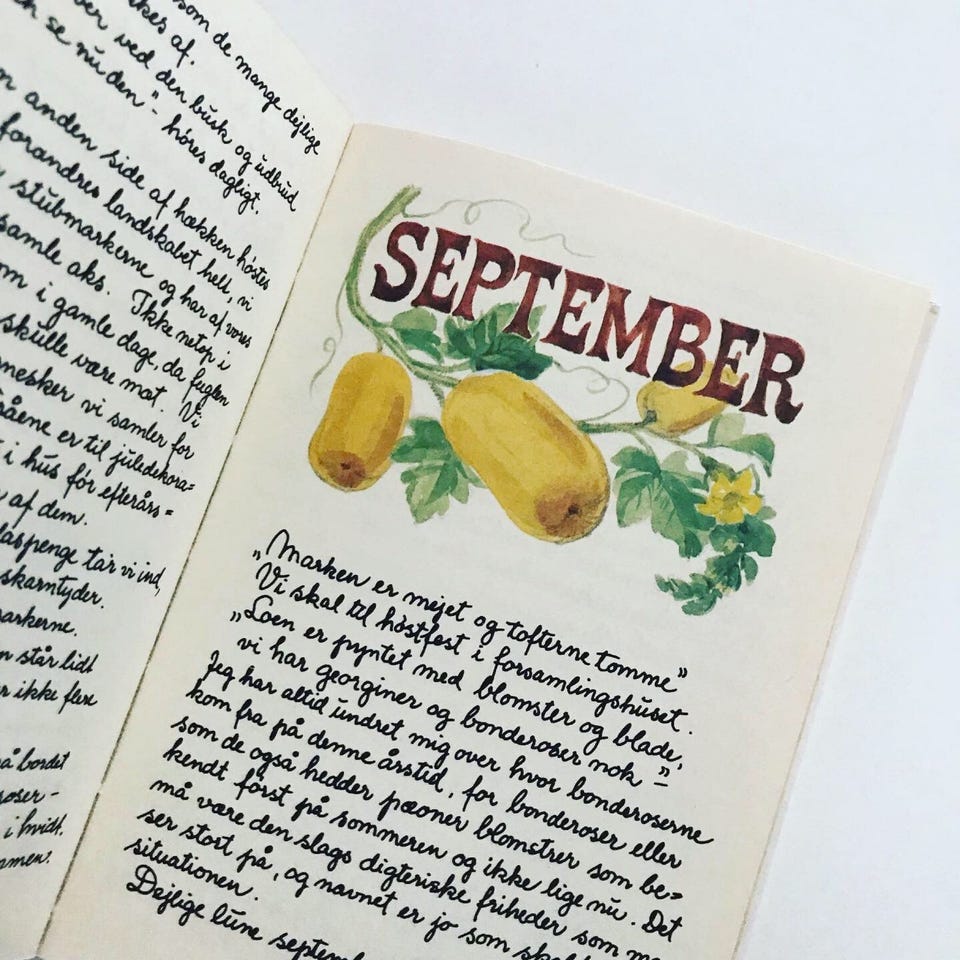 som de mange dejlige
kes af.
ver ved den busk og udbrud
se nu den" - høres dagligt.
anden side af hækken høstes
forandres landskabet helt, vi
stubmarkerne og har af vores
samle aks. Ikke netop i
om i gamle dage, da fuglen
skulle være mæt. Vi
nesker vi samler for
råene er til juledekora=
i hus før efterårs=
af dem.
laspenge tar vi ind,
skarntyder.
arkerne.
n står lidt
r ikke flere
å bordet
roser -
i hvidt.
mmen.
SEPTEMBER
„Marken er mejet og tofterne tomme"
Vi skal til høstfest i forsamlingshuset.
„Loen er pyntet med blomster og blade,
vi har georginer og bonderoser nok -"
Jeg har altid undret mig over hvor bonderoserne
kom fra på denne årstid, for bonderoser eller
som de også hedder pæoner blomstrer som be=
kendt først på sommeren og ikke lige nu. Det
må være den slags digteriske friheder som ma
ser stort på, og navnet er jo som skab
situationen.
Dejlige lune septemb